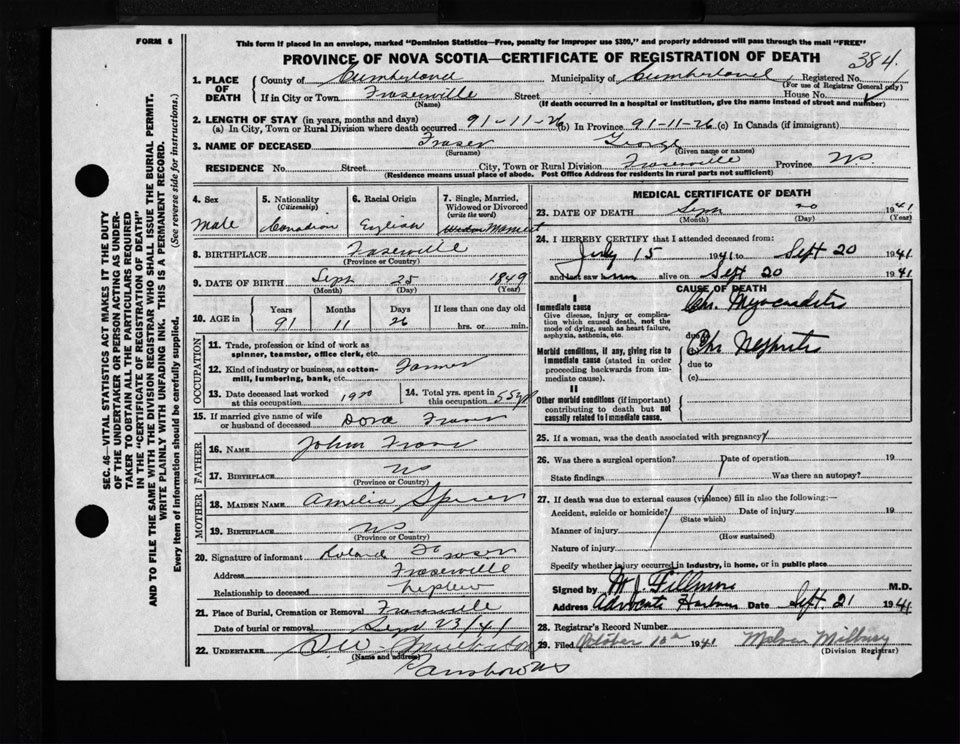 FORM 6
This form if placed in an envelope, marked "Dominion Statistics—Free, penalty for improper use $300," and properly addressed will pass through the mail "FREE"
PROVINCE OF NOVA SCOTIA—CERTIFICATE OF REGISTRATION OF DEATH
384
1. PLACE OF DEATH County of Cumberland Municipality of Cumberland Registered No.
(For use of Registrar General only)
If in City or Town Fraserville Street House No.
(Name) (If death occurred in a hospital or institution, give the name instead of street and number)
2. LENGTH OF STAY (in years, months and days)
(a) In City, Town or Rural Division where death occurred 91-11-26 (b) In Province 91-11-26 (c) In Canada (if immigrant)
3. NAME OF DECEASED Fraser George
(Surname) (Given name or names)
RESIDENCE No. Street City, Town or Rural Division Fraserville Province NS
(Residence means usual place of abode. Post Office Address for residents in rural parts not sufficient)
4. Sex Male
5. Nationality (Citizenship) Canadian
6. Racial Origin English
7. Single, Married, Widowed or Divorced (write the word)
8. BIRTHPLACE Faserville
(Province or Country)
9. DATE OF BIRTH Sept 25 1849
(Month) (Day) (Year)
10. AGE in Years 91 Months 11 Days 26 If less than one day old hrs. or min.
OCCUPATION
11. Trade, profession or kind of work as spinner, teamster, office clerk, etc.
12. Kind of industry or business, as cotton-mill, lumbering, bank, etc. Farmer
13. Date deceased last worked at this occupation
14. Total yrs. spent in this occupation
15. If married give name of wife or husband of deceased Dora
FATHER
16. NAME John
17. BIRTHPLACE NS
(Province or Country)
MOTHER
18. MAIDEN NAME Amelia
19. BIRTHPLACE NS
(Province or Country)
20. Signature of informant Roland Fraser
Address Fraserville
Relationship to deceased nephew
21. Place of Burial, Cremation or Removal Fraserville
Date of burial or removal Sept 23/41
22. UNDERTAKER
(Name and address)
MEDICAL CERTIFICATE OF DEATH
23. DATE OF DEATH Sept 20 1941
(Month) (Day) (Year)
24. I HEREBY CERTIFY that I attended deceased from:
July 15 1941 to Sept 20 1941
and last saw him alive on Sept 20 1941
CAUSE OF DEATH
I
Immediate cause
Give disease, injury or complication which caused death, not the mode of dying, such as heart failure, asphyxia, asthenia, etc.
Chr. Myocarditis
due to
Morbid conditions, if any, giving rise to immediate cause (stated in order proceeding backwards from immediate cause).
Chr Nephritis
due to
(c)
II
Other morbid conditions (if important) contributing to death but not causally related to immediate cause.
25. If a woman, was the death associated with pregnancy?
26. Was there a surgical operation? Date of operation 19
State findings Was there an autopsy?
27. If death was due to external causes (violence) fill in also the following:—
Accident, suicide or homicide? Date of injury 19
(State which)
Manner of injury
(How sustained)
Nature of injury
Specify whether injury occurred in industry, in home, or in public place
Signed by M.D.
Address Advocate Harbour Date Sept. 21 1941
28. Registrar's Record Number
29. Filed October 10th 1941
(Division Registrar)
SEC. 46—VITAL STATISTICS ACT MAKES IT THE DUTY
OF THE UNDERTAKER OR PERSON ACTING AS UNDER-
TAKER TO OBTAIN ALL THE PARTICULARS REQUIRED
IN THE "CERTIFICATE OF REGISTRATION OF DEATH"
AND TO FILE THE SAME WITH THE DIVISION REGISTRAR WHO SHALL ISSUE THE BURIAL PERMIT.
WRITE PLAINLY WITH UNFADING INK. THIS IS A PERMANENT RECORD.
Every item of information should be carefully supplied. (See reverse side for instructions.)